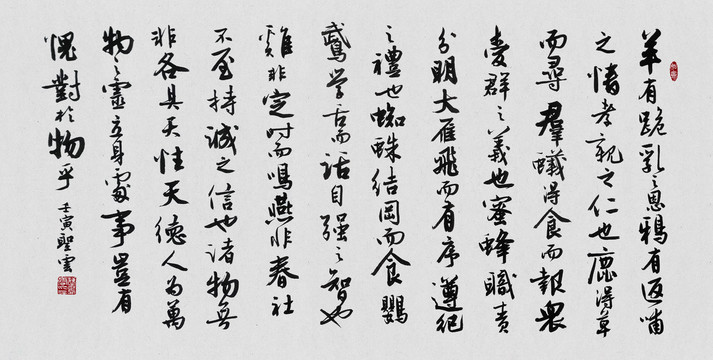 羊有跪乳之恩鴉有返哺
之情孝親之仁也鹿得草
而尋羣蟻得食而報眾
愛群之義也蜜蜂職責
分明大雁飛而有序遵紀
之禮也蜘蛛結罔而食鸚
鵡學舌而話自强之智也
雞非定时而鳴燕非春社
不至持誠之信也诸物無
非各具天性天德人为萬
物之靈立身處事豈有
愧對於物乎 壬寅聖雲